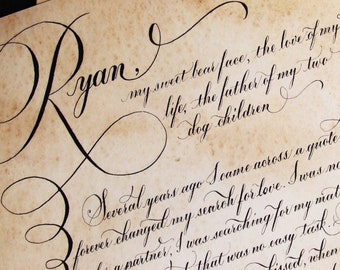 Ryan,
my sweet bear face, the love of my
life, the father of my two
dog children
Several years ago I came across a quote
forever changed my search for love. I was no
a partner, I was searching for my mat
that was no easy task.
kissed, when